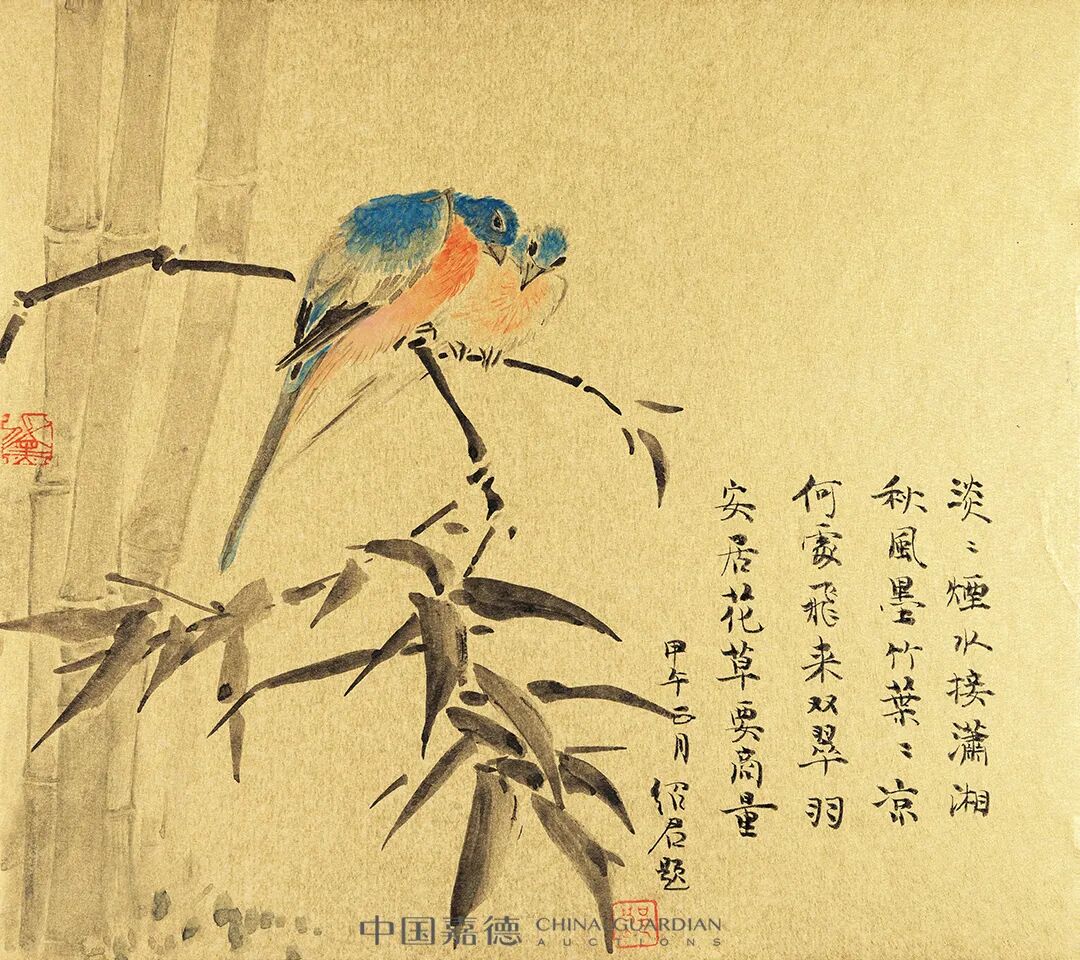 淡〻煙水接瀟湘
秋風墨竹葉〻凉
何處飛来双翠羽
安居花草要商量
甲午正月 绍君题
中国嘉德 CHINA GUARDIAN
AUCTIONS